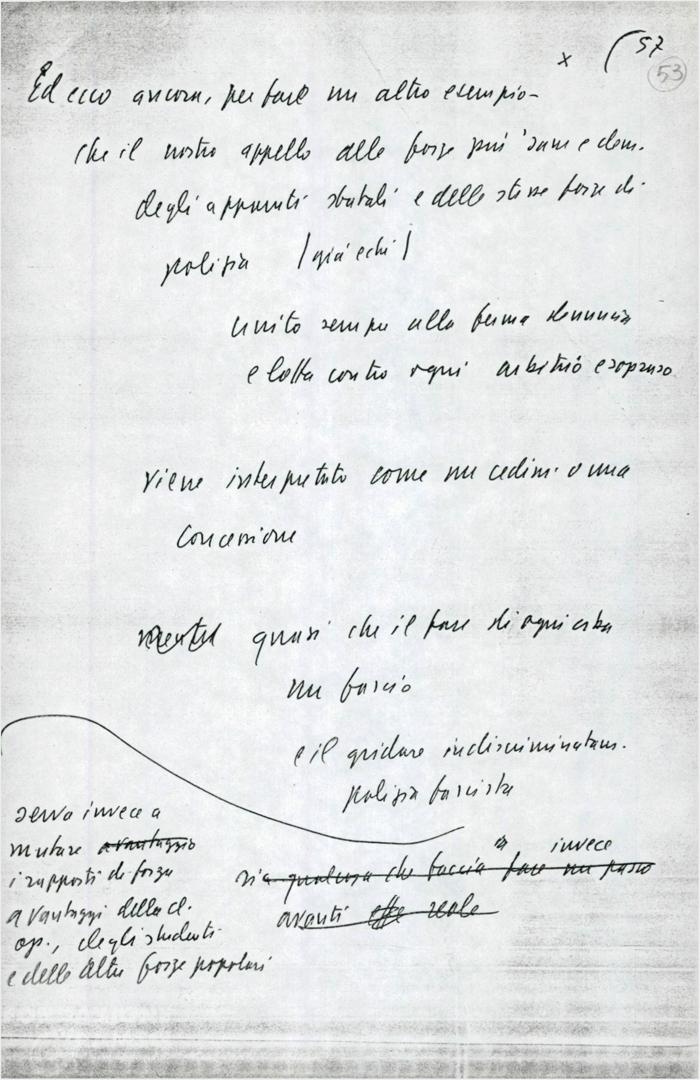 x (57
53
Ed ecco ancora, per fare un altro esempio -
che il nostro appello alle forze più sane e dem.
degli apparati statali e delle stesse forze di
polizia (già echi)
unito sempre alla ferma denuncia
e lotta contro ogni arbitrio e sopruso
viene interpretato come un cedim. o una
concessione
quasi che il fare di ogni erba
un fascio
e il gridare indiscriminatam.
polizia fascista
serva invece a
mutare avantaggio
i rapporti di forza
a vantaggi della cl.
op., degli studenti
e delle altre forze popolari
invece
sia qualcosa che faccia fare un passo
avanti reale